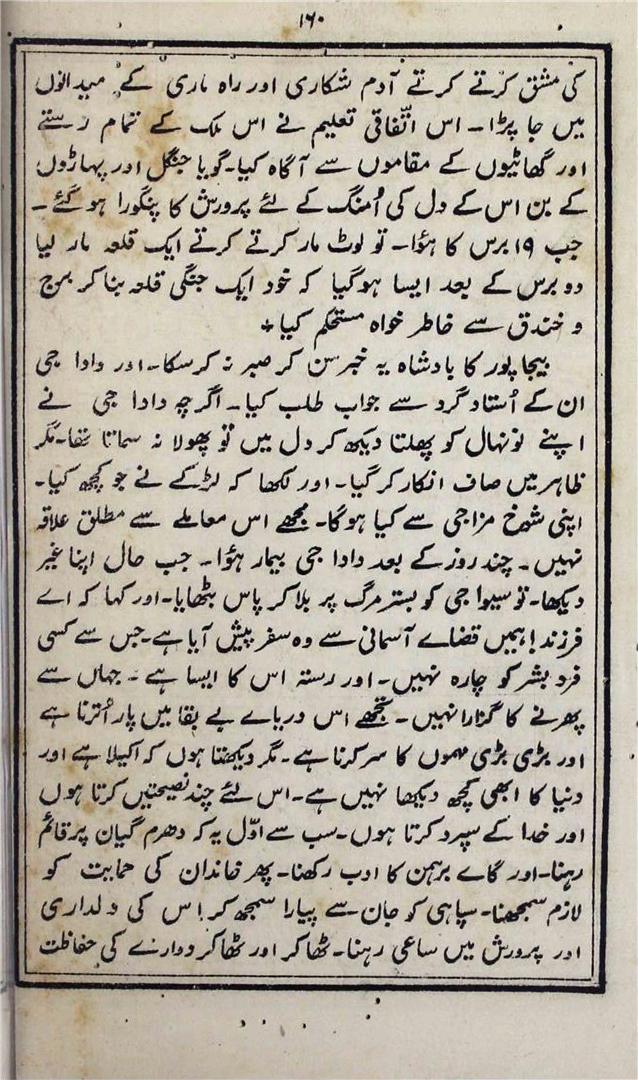 ۱۶۰
کی مشق کرتے کرتے آدم شکاری اور راہ ماری کے میدانوں
میں جا پڑا۔ اس اتّفاقی تعلیم نے اس ملک کے تمام رستے
اور گھاٹیوں کے مقاموں سے آگاہ کیا۔ گویا جنگل اور پہاڑوں
کے بن اس کے دل کی اُمنگ کے لئے پرورش کا پنگورا ہو گئے۔
جب ۱۹ برس کا ہؤا۔ تو لوٹ مار کرتے کرتے ایک قلعہ مار لیا
دو برس کے بعد ایسا ہوگیا کہ خود ایک جنگی قلعہ بنا کر برج
و خندق سے خاطر خواہ مستحکم کیا٭
بیجاپور کا بادشاہ یہ خبر سن کر صبر نہ کر سکا۔ اور دادا جی
ان کے اُستاد گرد سے جواب طلب کیا۔ اگرچہ دادا جی نے
اپنے نونہال کو پھلتا دیکھ کر دل میں تو پھولا نہ سماتا تھا۔ مگر
ظاہر میں صاف انکار کر گیا۔ اور لکھا کہ لڑکے نے جو کچھ کیا۔
اپنی شوخ مزاجی سے کیا ہوگا۔ مجھے اس معاملے سے مطلق علاقہ
نہیں۔ چند روز کے بعد دادا جی بیمار ہؤا۔ جب حال اپنا غیر
دیکھا۔ تو سیوا جی کو بستر مرگ پر بلا کر پاس بٹھایا۔ اور کہا کہ اے
فرزند! ہمیں قضاے آسمانی سے وہ سفر پیش آیا ہے۔ جس سے کسی
فرد بشر کو چارہ نہیں۔ اور رستہ اس کا ایسا ہے۔ جہاں سے
پھرنے کا گزارا نہیں۔ تجھے اس دریاے بے بقا میں پار اُترنا ہے
اور بڑی بڑی مہموں کا سر کرنا ہے۔ مگر دیکھتا ہوں کہ اکیلا ہے اور
دنیا کا ابھی کچھ دیکھا نہیں ہے۔ اس لئے چند نصیحتیں کرتا ہوں
اور خدا کے سپرد کرتا ہوں۔ سب سے اوّل یہ کہ دھرم گیان پر قائم
رہنا۔ اور گاے برہمن کا ادب رکھنا۔ پھر خاندان کی حمایت کو
لازم سمجھنا۔ سپاہی کو جان سے پیارا سمجھ کر اس کی دلداری
اور پرورش میں ساعی رہنا۔ ٹھاکر اور ٹھاکر دوارے کی حفاظت